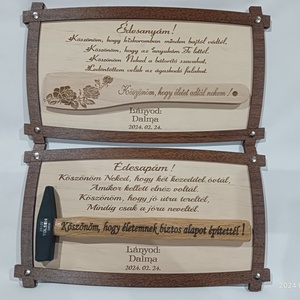 Édesanyám!
Köszönöm, hogy közbenned minden bajtól védtél,
Köszönöm, hogy az anyukám Te lettél.
Köszönöm Neked a bátorító szavakat,
Köszönöm, hogy életet adtál nekem!
Lányod:
Dalma
2024. 02. 24.
Édesapám!
Köszönöm Neked, hogy két kezeddel óvtál,
Amikor kellett elnéz voltál.
Köszönöm, hogy jó útra tereltél,
Mindig csak a jóra neveltél.
Köszönöm, hogy életemnek biztos alapot építettél!
Lányod:
Dalma
2024. 02. 24.